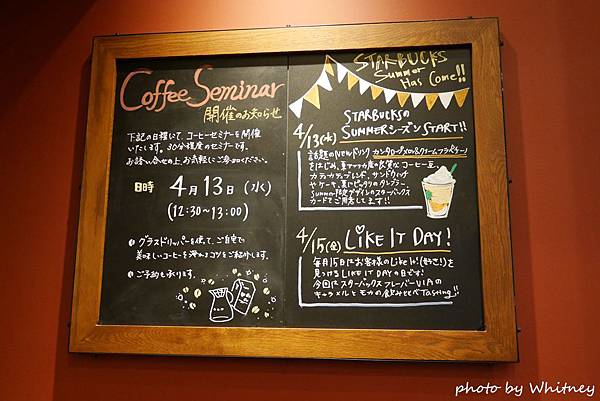 Coffee Seminar
開催のお知らせ
下記の日程にて、コーヒーセミナーを開催
いたします。30分程度のセミナーです。
お誘い合せの上、お気軽にご参加ください。
日時 4月13日(水)
(12:30~13:00)
グラスドリッパーを使って、ご自宅で
美味しいコーヒーを淹れるコツをご紹介します。
ご予約も承ります。
STARBUCKS
Summer
Has Come!!
4/13(水)
STARBUCKSの
SUMMERシーズン START!!
話題のNEWドリンク カンタロープメロン&クリームフラペチーノ
をはじめ、
コーヒー豆、
サンドウィッチ
やケーキ、夏にピッタリのタンブラー、
Summer限定デザインのスターバックス
カードでご用意してます!!
4/15(金) LIKE IT DAY!
毎月15日はお客様のLike It!(好き!)を
見つける LIKE IT DAYの日です!
今回はスターバックス フレーバーVIAの
キャラメルとモカの飲み比べTasting!!
photo by Whitney